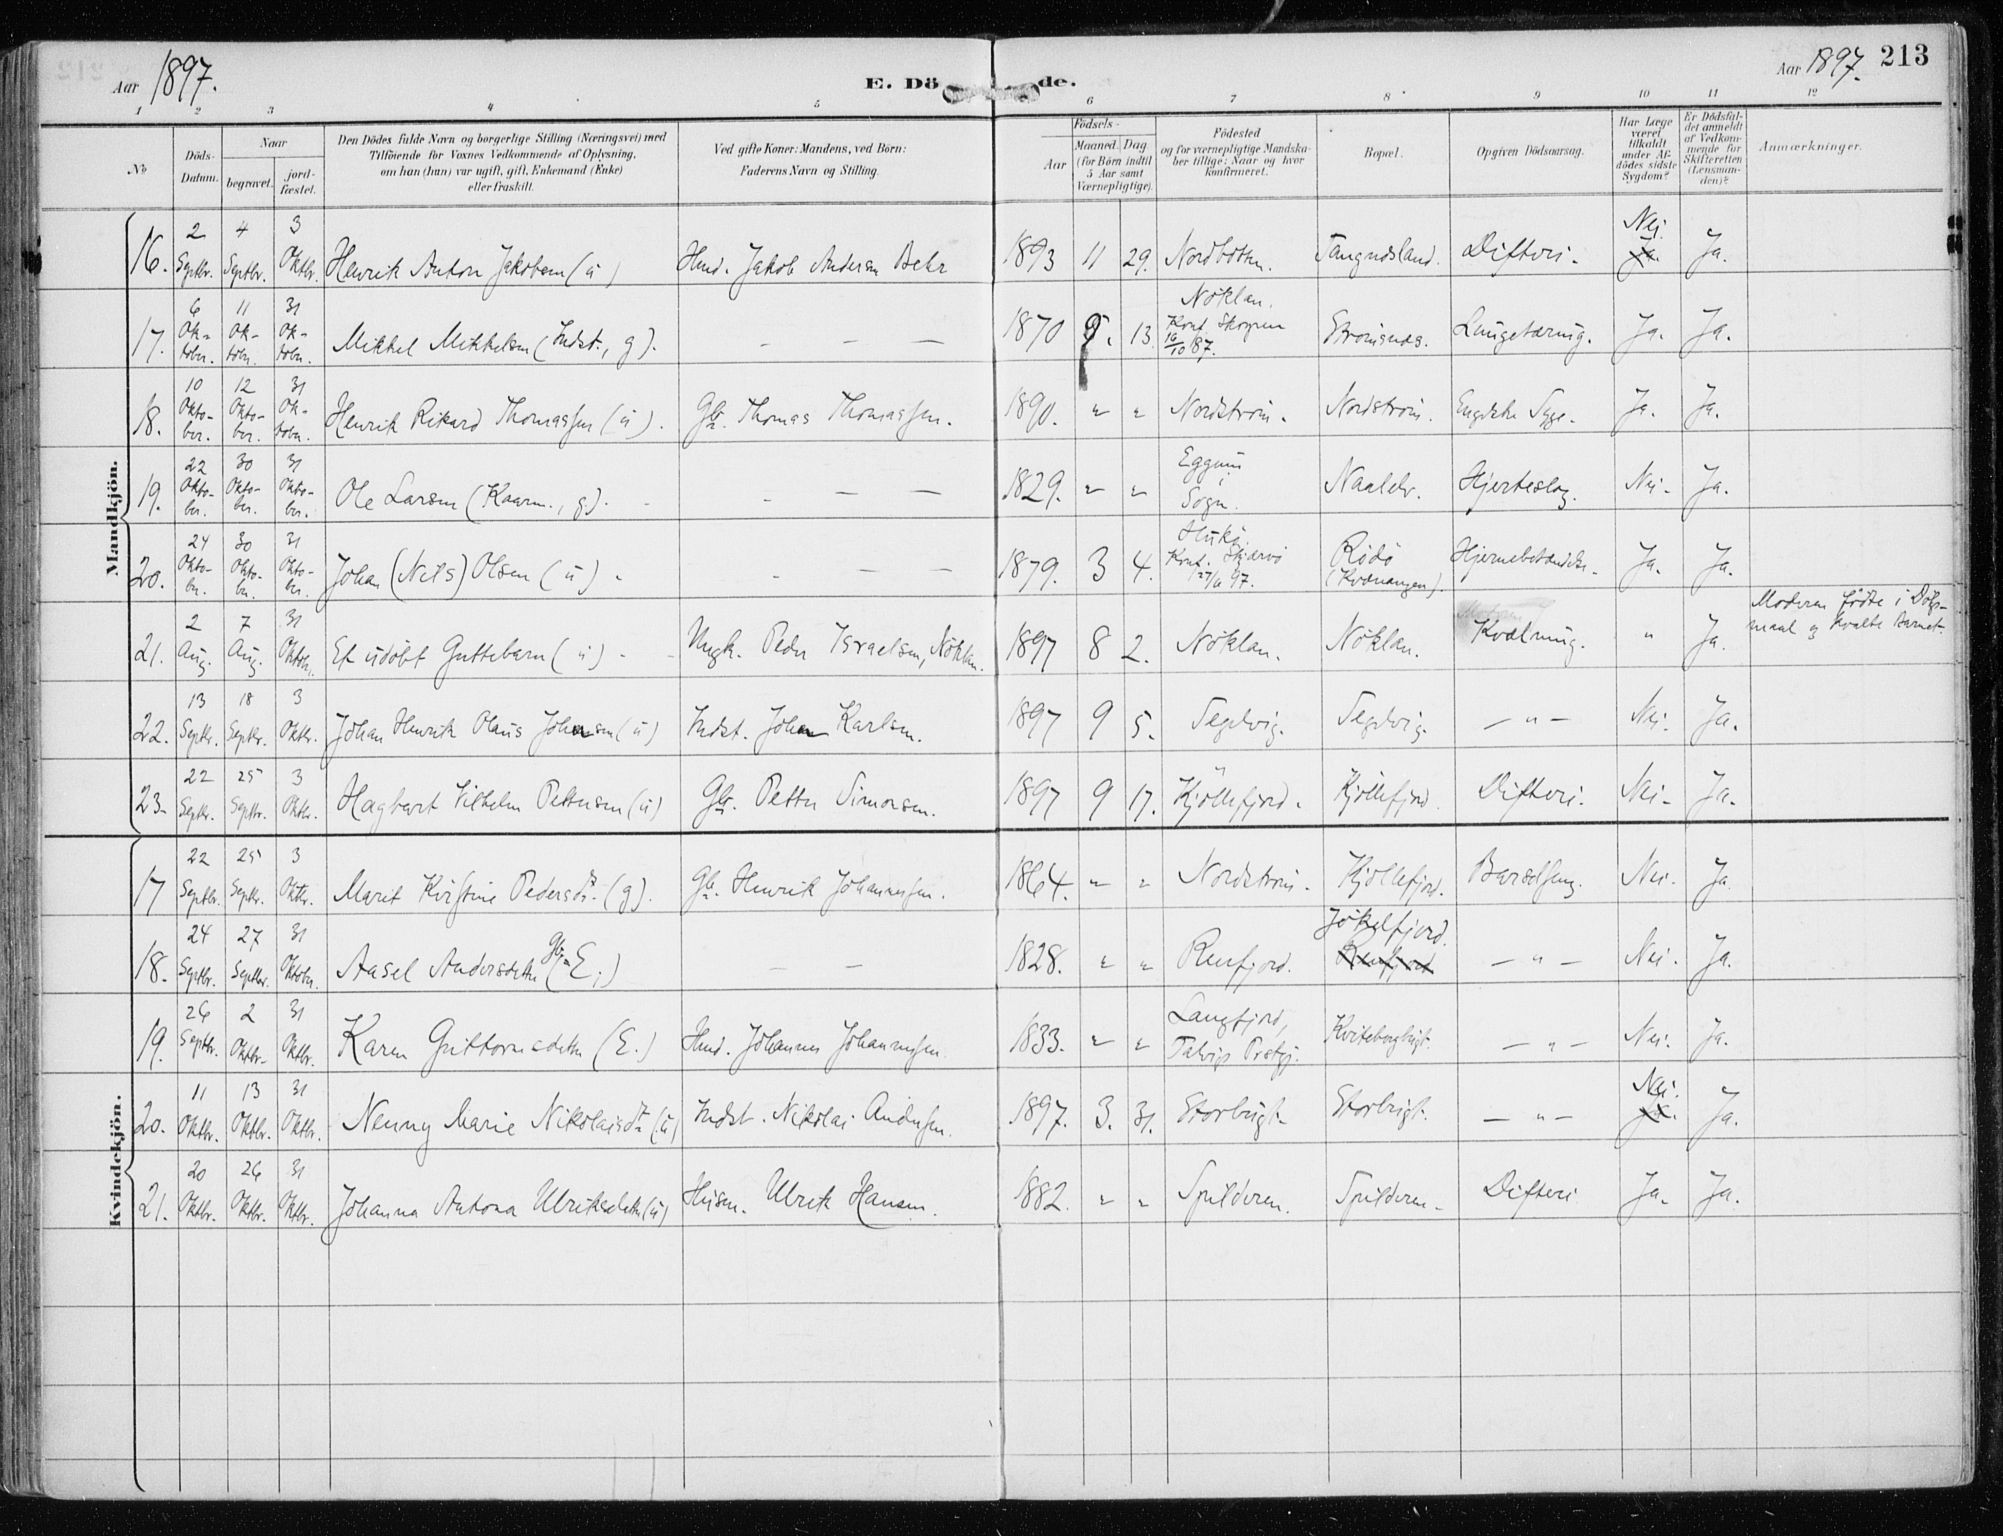 Aar 1897.
E. Dö de.
Aar 1897. 213
1 2 3 4 5 6 7 8 9 10 11 12
No
Döds-Datum.
Naar
begravet.
jord-fæstet.
Den Dödes fulde Navn og borgerlige Stilling (Næringsvei) med
Tilföiende for Voxnes Vedkommende af Oplysning,
om han (hun) var ugift, gift, Enkemand (Enke)
eller fraskilt.
Ved gifte Koner: Mandens, ved Börn:
Faderens Navn og Stilling.
Födsels-
Aar
Maaned. Dag
(for Börn indtil
5 Aar samt
Værnepligtige).
Födested
og for værnepligtige Mandska-
ber tillige: Naar og hvor
konfirmeret.
Bopæl.
Opgiven Dödsaarsag.
Har Læge
været
tilkaldt
under Af-
dödes sidste
Sygdom?
Er Dödsfal-
det anmeldt
af Vedkom-
mende for
Skifteretten
(Lensman-
den)?
Anmærkninger.
Mandkjön.
16. 2 Septbr. 4 Septbr. 3 Oktbr. Henrik Anton Jakobsen (u) Hmd. Jakob Andersen Behr 1893 11 29. Nordbotn. Difteri. Nei. Ja. Ja.
17. 6 Oktober. 11 Oktober. 31 Oktober. Mikkel Mikkelsen (Indst., g). — — — 1870 9. 13. Nöklan. Konf. Skorpen 16/10 87. Strömsnes. Lungetæring. Ja. Ja.
18. 10 Oktober. 12 Oktober. 31 Oktober. Henrik Rikard Thomassen (u). Gbr. Thomas Thomassen. 1890. " " Nordström. Nordström. Engelske Syge. Ja. Ja.
19. 22 Oktober. 30 Oktober. 31 Oktober. Ole Larsen (Kaarm., g). - - — — 1829. " " Eggum i Sogn. Naalelv. Hjerteslag. Nei. Ja.
20. 24 Oktober. 30 Oktober. 31 Oktober. Johan (Nils) Olsen (u). - — — 1879. 3 4. Konf. Skjervö 97. Rödö (Kvænangen). Hjernebetændelse. Ja. Ja.
21. 2 Aug. 7 Aug. 31 Oktober. Et udöbt Guttebarn (u) - - Ungk. Peder Israelsen, Nöklan. 1897 8 2. Nöklan. Nöklan. Kvælning. " Ja. Moderen födte i Dölgs-
maal og kvalte Barnet.
22. 13 Septbr. 18 Septbr. 3 Oktbr. Johan Henrik Olaus Johansen (u) Indst. Johan Karlsen. 1897 9 5. Segelvig. Segelvig. — " — Nei. Ja.
23. 22 Septbr. 25 Septbr. 3 Oktbr. Hagbart Vilhelm Pettersen (u) Gbr. Petter Simonsen. 1897 9 17. Kjöllefjord. Kjöllefjord. Difteri. Nei. Ja.
Kvindekjön.
17 22 Septbr. 25 Septbr. 3 Oktbr. Marit Kristine Pedersdr. (g). Gbr. Henrik Johannessen. 1864. " " Nordström. Kjöllefjord. Barselseng. Nei. Ja.
18. 24 Septbr. 27 Septbr. 31 Oktober. Aasel Andersdatter (Gbr. E.) — — 1828. " " Renfjord. Jökelfjord. Renfjord — " — Nei. Ja.
19. 26 Septbr. 2 Oktbr. 31 Oktbr. Karen Guttormsdatter (E.) Hmd. Johannes Johannesen. 1833. " " Langfjord, Talvigs Prstgj. Kvitebergbugt. — " — Nei. Ja.
20. 11 Oktbr. 13 Oktbr. 31 Oktbr. Nenny Marie Nikolaisdr. (u) Indst. Nikolai Andersen. 1897. 3. 31. Storbugt. Storbugt. — " — Nei. Ja. Ja.
21. 20 Oktbr. 26 Oktbr. 31 Oktbr. Johanna Antona Ulriksdatter (u) Husm. Ulrik Hansen. 1882. " " Spilderen. Spilderen. Difteri Ja. Ja.